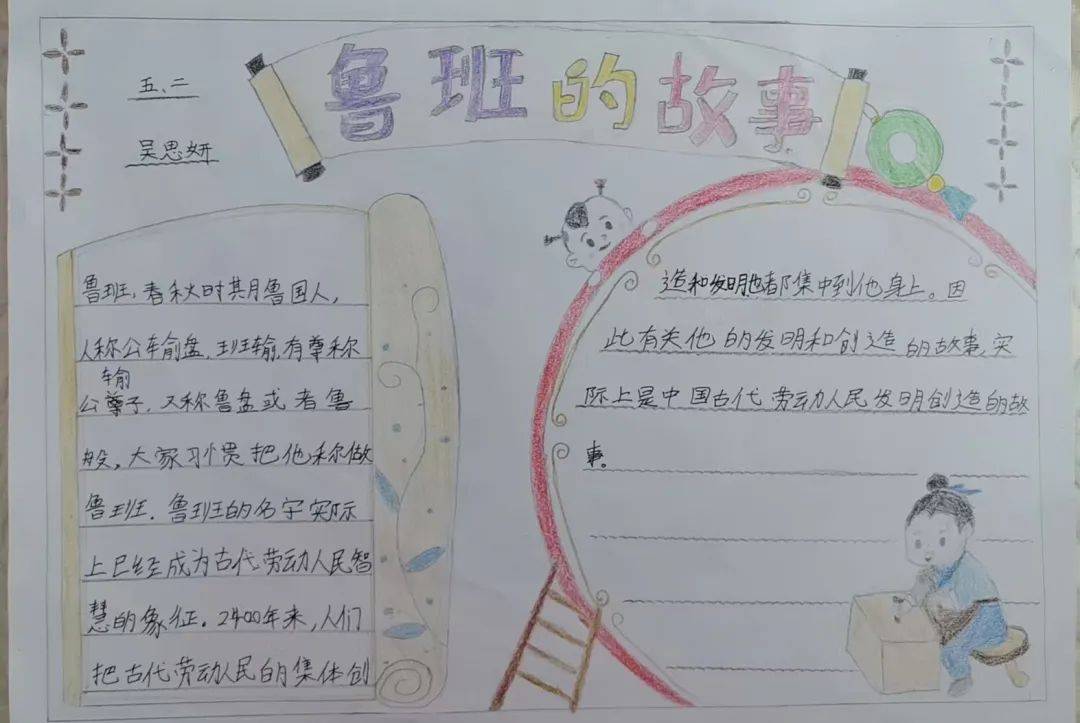 鲁班的故事
五、二
吴思妍
鲁班,春秋时其月鲁国人,
人称公车输盘,班输,有尊称
公输子,又称鲁盘或者鲁
般,大家习惯把他称做
鲁班.鲁班的名字实际
上已经成为古代劳动人民智
慧的象征.2400年来,人们
把古代劳动人民的集体创
造和发明也都集中到他身上。因
此有关他的发明和创造的故事,实
际上是中国古代劳动人民发明创造的故
事。